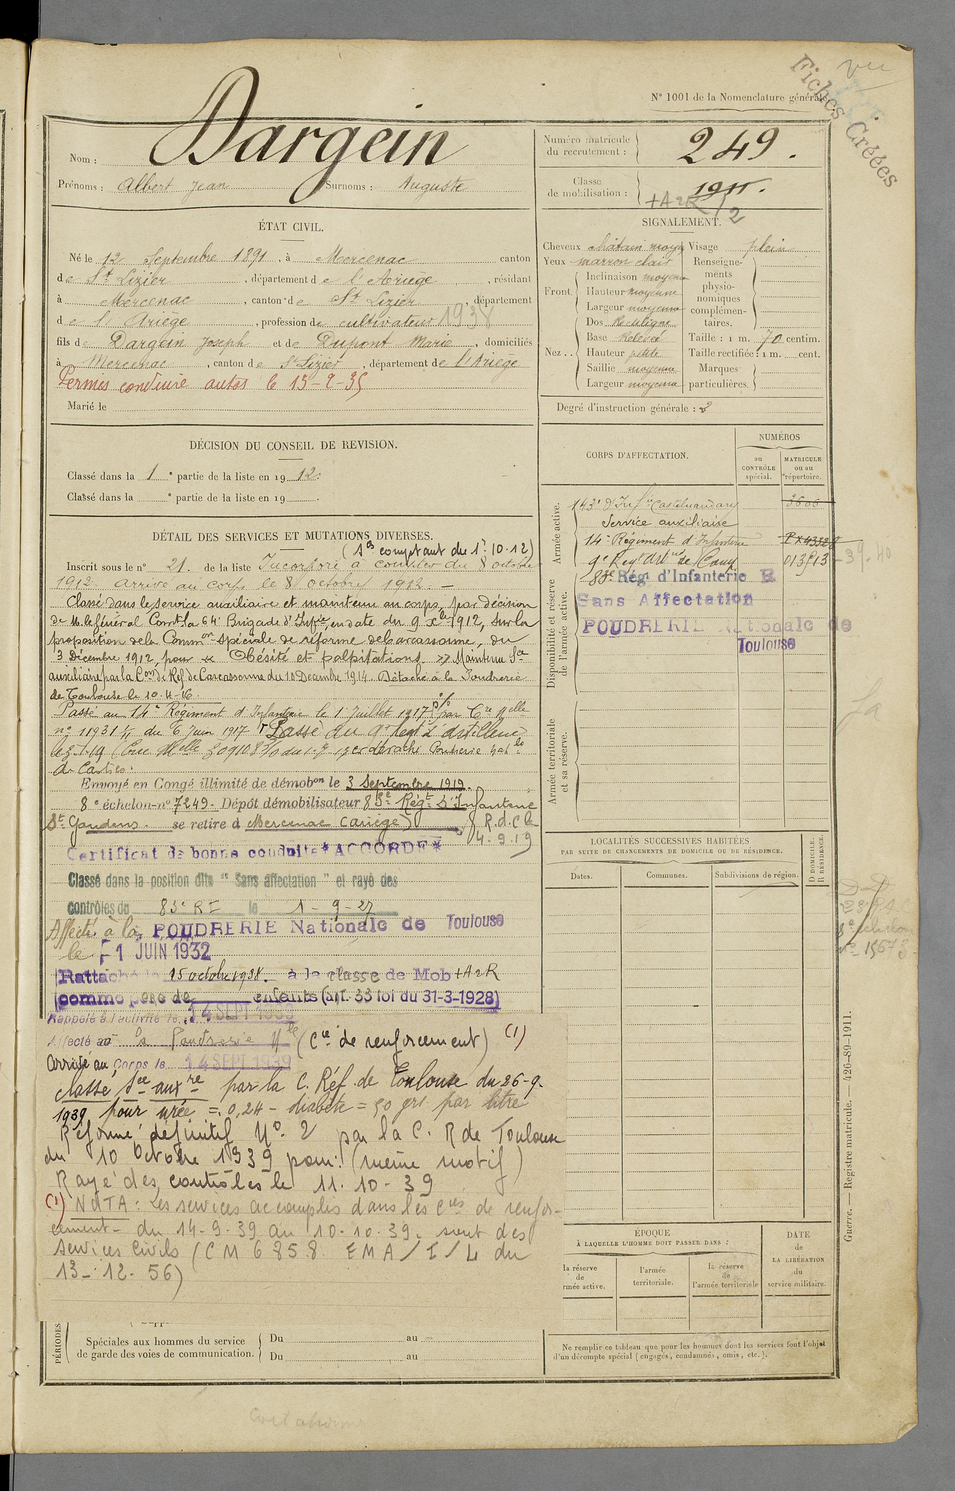 vu
Fiches Créées
N° 1001 de la Nomenclature générale.
Nom : Dargein
Prénoms : Albert Jean Surnoms : Auguste
Numéro matricule du recrutement : 249.
Classe de mobilisation : 1911.
+A2R/2
ÉTAT CIVIL.
Né le 12 Septembre 1891, à Mercenac canton
de St Lizier, département de l'Ariège, résidant
à Mercenac, canton de St Lizier, département
de l'Ariège, profession de cultivateur 1938
fils de Dargein Joseph et de Dupont Marie, domiciliés
à Mercenac, canton de St Lizier, département de l'Ariège
Permis conduire autos le
Marié le
SIGNALEMENT.
Cheveux châtain moyen Visage plein
Yeux marron clair
Front. Inclinaison moyenne
Hauteur moyenne
Largeur moyenne
Nez. Dos Rectiligne
Base Relevée
Hauteur petite
Saillie moyenne
Largeur moyenne
Renseignements physionomiques complémentaires.
Taille : 1 m. 70 centim.
Taille rectifiée : 1 m. cent.
Marques particulières.
Degré d'instruction générale : 3
DÉCISION DU CONSEIL DE REVISION.
Classé dans la 1e partie de la liste en 1912.
Classé dans la e partie de la liste en 19 .
DÉTAIL DES SERVICES ET MUTATIONS DIVERSES.
(Ss comptant du 1er.10.12)
Inscrit sous le n° 21. de la liste Incorporé à compter du 8 octobre
1912. Arrivé au corps le 8 octobre 1912. —
Classé dans le service auxiliaire et maintenu au corps, par décision
de M. le Général Comt la 64e Brigade d'Infie en date du 9 Xbre 1912, sur la
proposition de la Common spéciale de réforme de Carcassonne, du
3 Décembre 1912, pour « Obésité et palpitations » Maintenu Sce
auxiliaire par la Con de Réf. de Carcassonne du 10 Décembre 1914. Détaché à la Poudrerie
de Toulouse le
Passé au 14e Régiment d'Infanterie le 1er Juillet 1917 par Cre Mlle
n° du 6 Juin 1917 Passé au 9e Régt d'artillerie
Envoyé en Congé illimité de démobon le 3 Septembre 1919.
8e échelon n° 7249. Dépôt démobilisateur 83e Régt d'Infanterie
St Gaudens. se retire à Mercenac (Ariège) R.d.C. le
4.9.19
Certificat de bonne conduite "ACCORDÉ"
Classé dans la position dite "Sans affectation" et rayé des
contrôles du 83e RI le 1-9-27
Affecté à la POUDRERIE Nationale de Toulouse
le -1 JUIN 1932
Rattaché le 15 octobre 1938. à la classe de Mob +A2R
comme père de enfants (art. 33 loi du 31-3-1928)
Rappelé à l'activité le 14 SEPT 1939
Affecté au La Poudrerie Nle (Cie de renforcement) (1)
Arrivé au Corps le 14 SEPT 1939
classé Sce auxre par la C. Réf. de Toulouse du 26-9-
1939 pour urée = 0,24 – diabète = 50 grs par litre
Réformé définitif N° 2 par la C. R de Toulouse
du 10 Octobre 1939 pour (même motif)
Rayé des contrôles le 11-10-39
(1) NOTA : Les services accomplis dans les Cies de renfor-
cement du 14-9-39 au 10-10-39, sont des
services civils (CM 6858 EMA/I/L du
13-12-56)
PÉRIODES
Spéciales aux hommes du service de garde des voies de communication.
Du au
Du au
CORPS D'AFFECTATION.
NUMÉROS
au CONTRÔLE spécial.
MATRICULE ou au répertoire.
Armée active.
143e d'Infie Castelnaudary
Service auxiliaire
14e Régiment d'Infanterie
Disponibilité et réserve de l'armée active.
83e Rég. d'Infanterie
Sans Affectation
POUDRERIE Nationale de
Toulouse
Armée territoriale et sa réserve.
LOCALITÉS SUCCESSIVES HABITÉES
PAR SUITE DE CHANGEMENTS DE DOMICILE OU DE RÉSIDENCE.
Dates. Communes. Subdivisions de région. D DOMICILE. R RÉSIDENCE.
ÉPOQUE
À LAQUELLE L'HOMME DOIT PASSER DANS :
la réserve de armée active. l'armée territoriale. la réserve de l'armée territoriale
DATE de LA LIBÉRATION du service militaire.
Ne remplir ce tableau que pour les hommes dont les services font l'objet
d'un décompte spécial (engagés, condamnés, omis, etc.).
Guerre. — Registre matricule. — 426-89-1911.